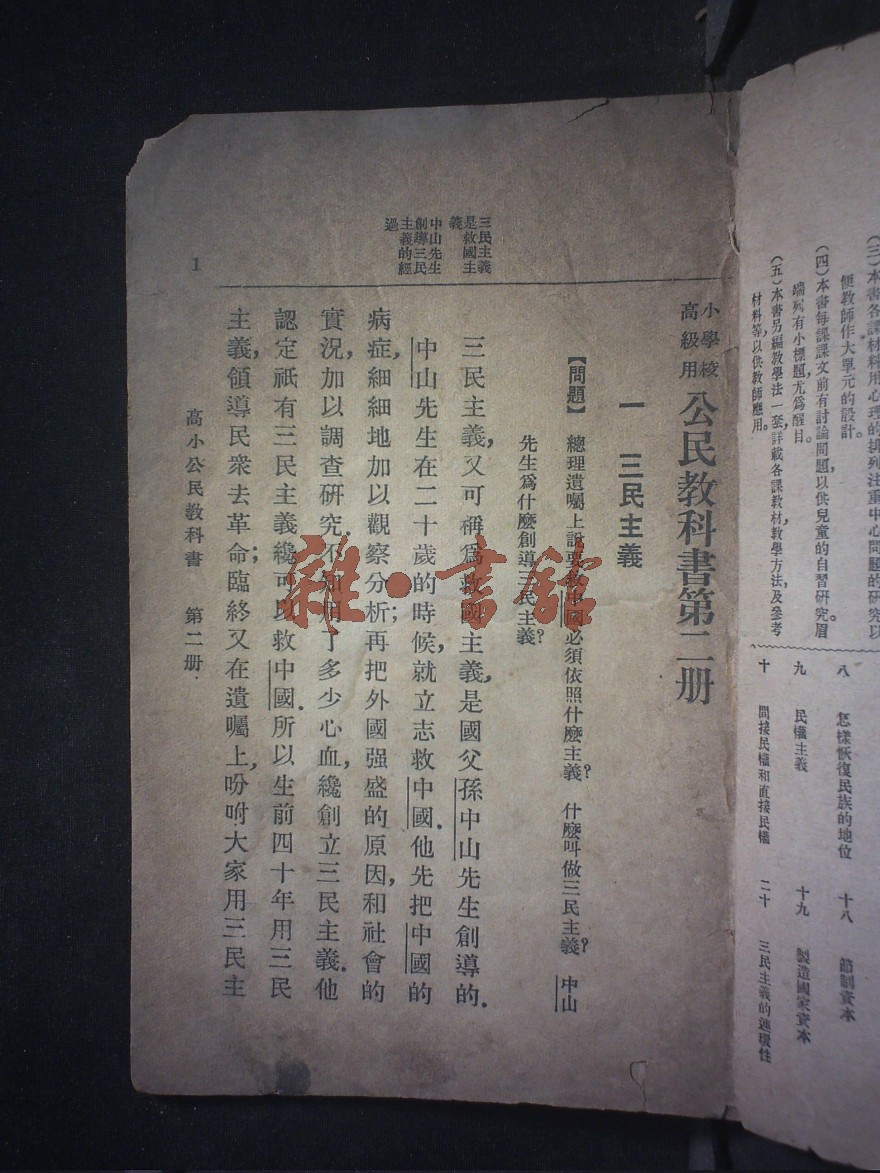 (三)本書各課材料用心理的排列注重中心問題的研究以
便教師作大單元的設計。
(四)本書每課課文前有討論問題,以供兒童的自習研究。眉
端列有小標題,尤爲醒目。
(五)本書另編教學法一套,詳載各課教材,教學方法,及參考
材料等,以供教師應用。
八 怎樣恢復民族的地位
九 民權主義
十 間接民權和直接民權
十八 節制資本
十九 製造國家資本
二十 三民主義的連環性
小學校
高級用
公民教科書第二册
一 三民主義
【問題】 總理遺囑上說要救中國必須依照什麽主義? 什麽叫做三民主義? 中山
先生爲什麽創導三民主義?
三民主義
是救國主
義
中山先生
創導三民
主義的經
過
三民主義,又可稱爲救國主義,是國父孫中山先生創導的.
中山先生在二十歲的時候,就立志救中國.他先把中國的
病症,細細地加以觀察分析;再把外國强盛的原因,和社會的
實況,加以調查研究.不知用了多少心血,纔創立三民主義.他
認定祇有三民主義纔可以救中國.所以生前四十年用三民
主義,領導民衆去革命;臨終又在遺囑上,吩咐大家用三民主
1
高小公民教科書 第二册.
雜·書館